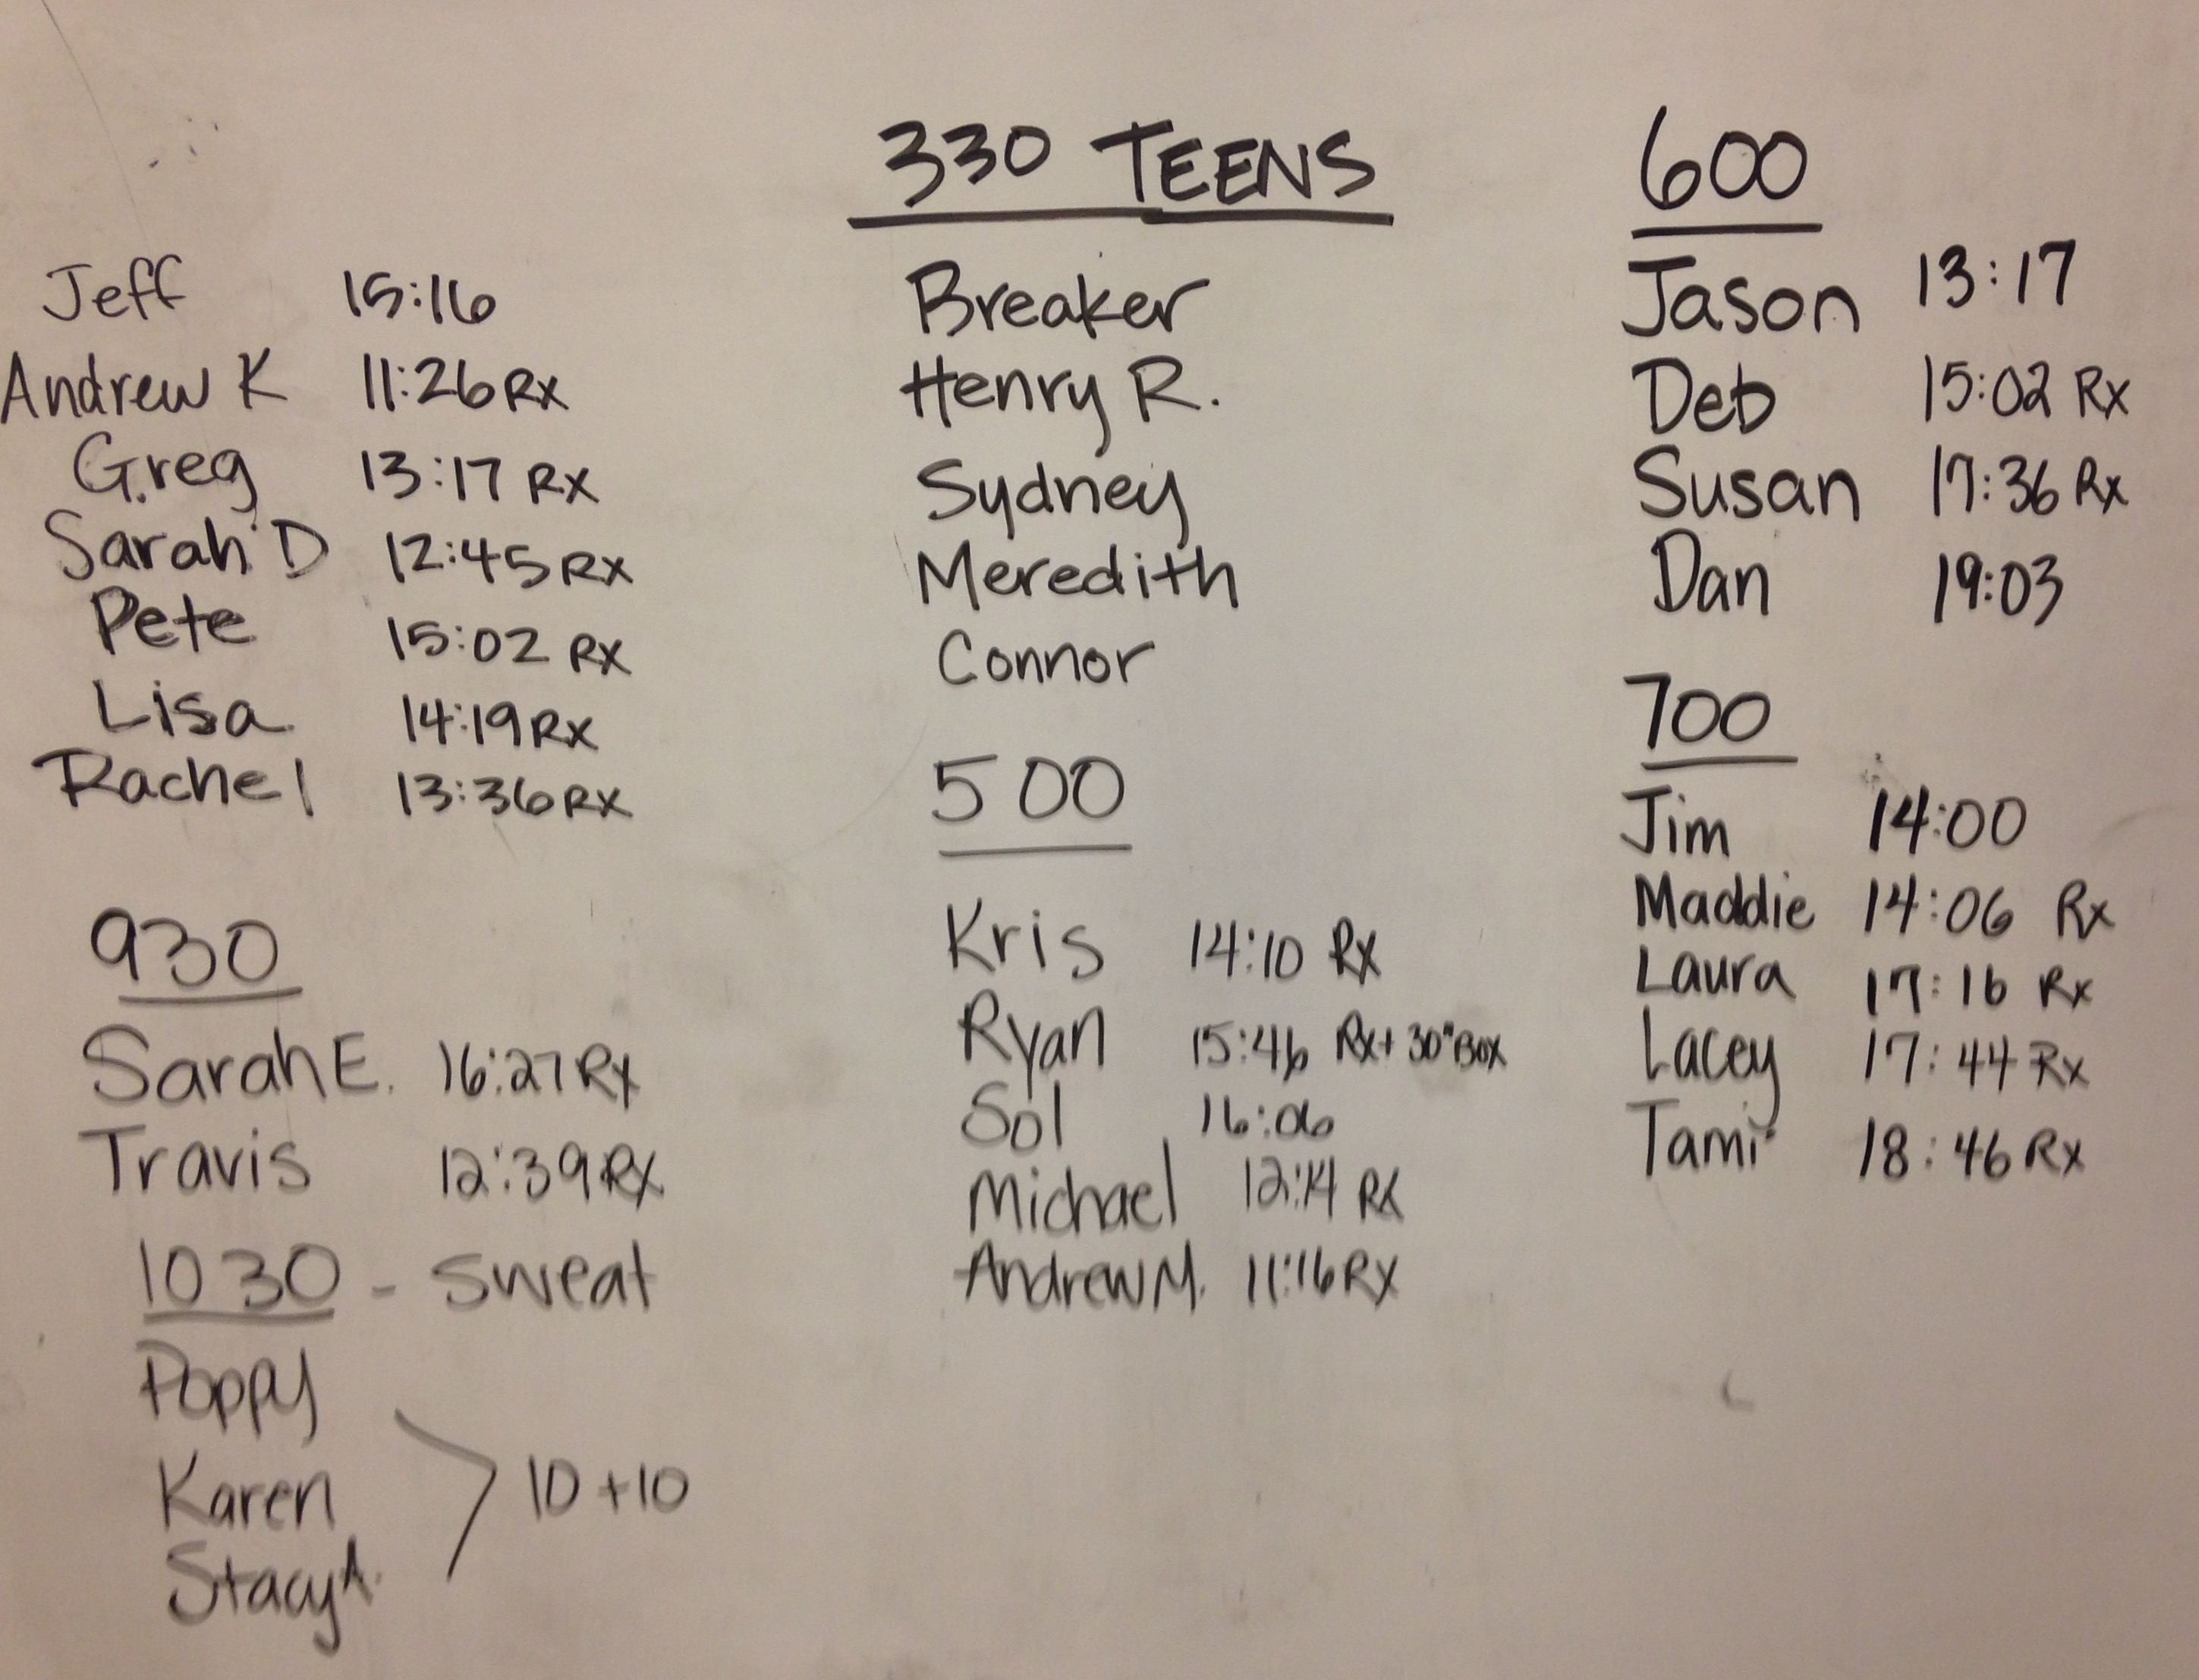 Jeff 15:16
Andrew K 11:26 Rx
Greg 13:17 Rx
Sarah D 12:45 Rx
Pete 15:02 Rx
Lisa 14:19 Rx
Rachel 13:36 Rx
930
Sarah E. 16:27 Rx
Travis 12:39 Rx
1030 - Sweat
Poppy
Karen
Stacy A.
10 + 10
330 TEENS
Breaker
Henry R.
Sydney
Meredith
Connor
500
Kris 14:10 Rx
Ryan 15:46 Rx+ 30" Box
Sol 16:06
Michael 12:14 Rx
Andrew M. 11:16 Rx
600
Jason 13:17
Deb 15:02 Rx
Susan 17:36 Rx
Dan 19:03
700
Jim 14:00
Maddie 14:06 Rx
Laura 17:16 Rx
Lacey 17:44 Rx
Tami 18:46 Rx